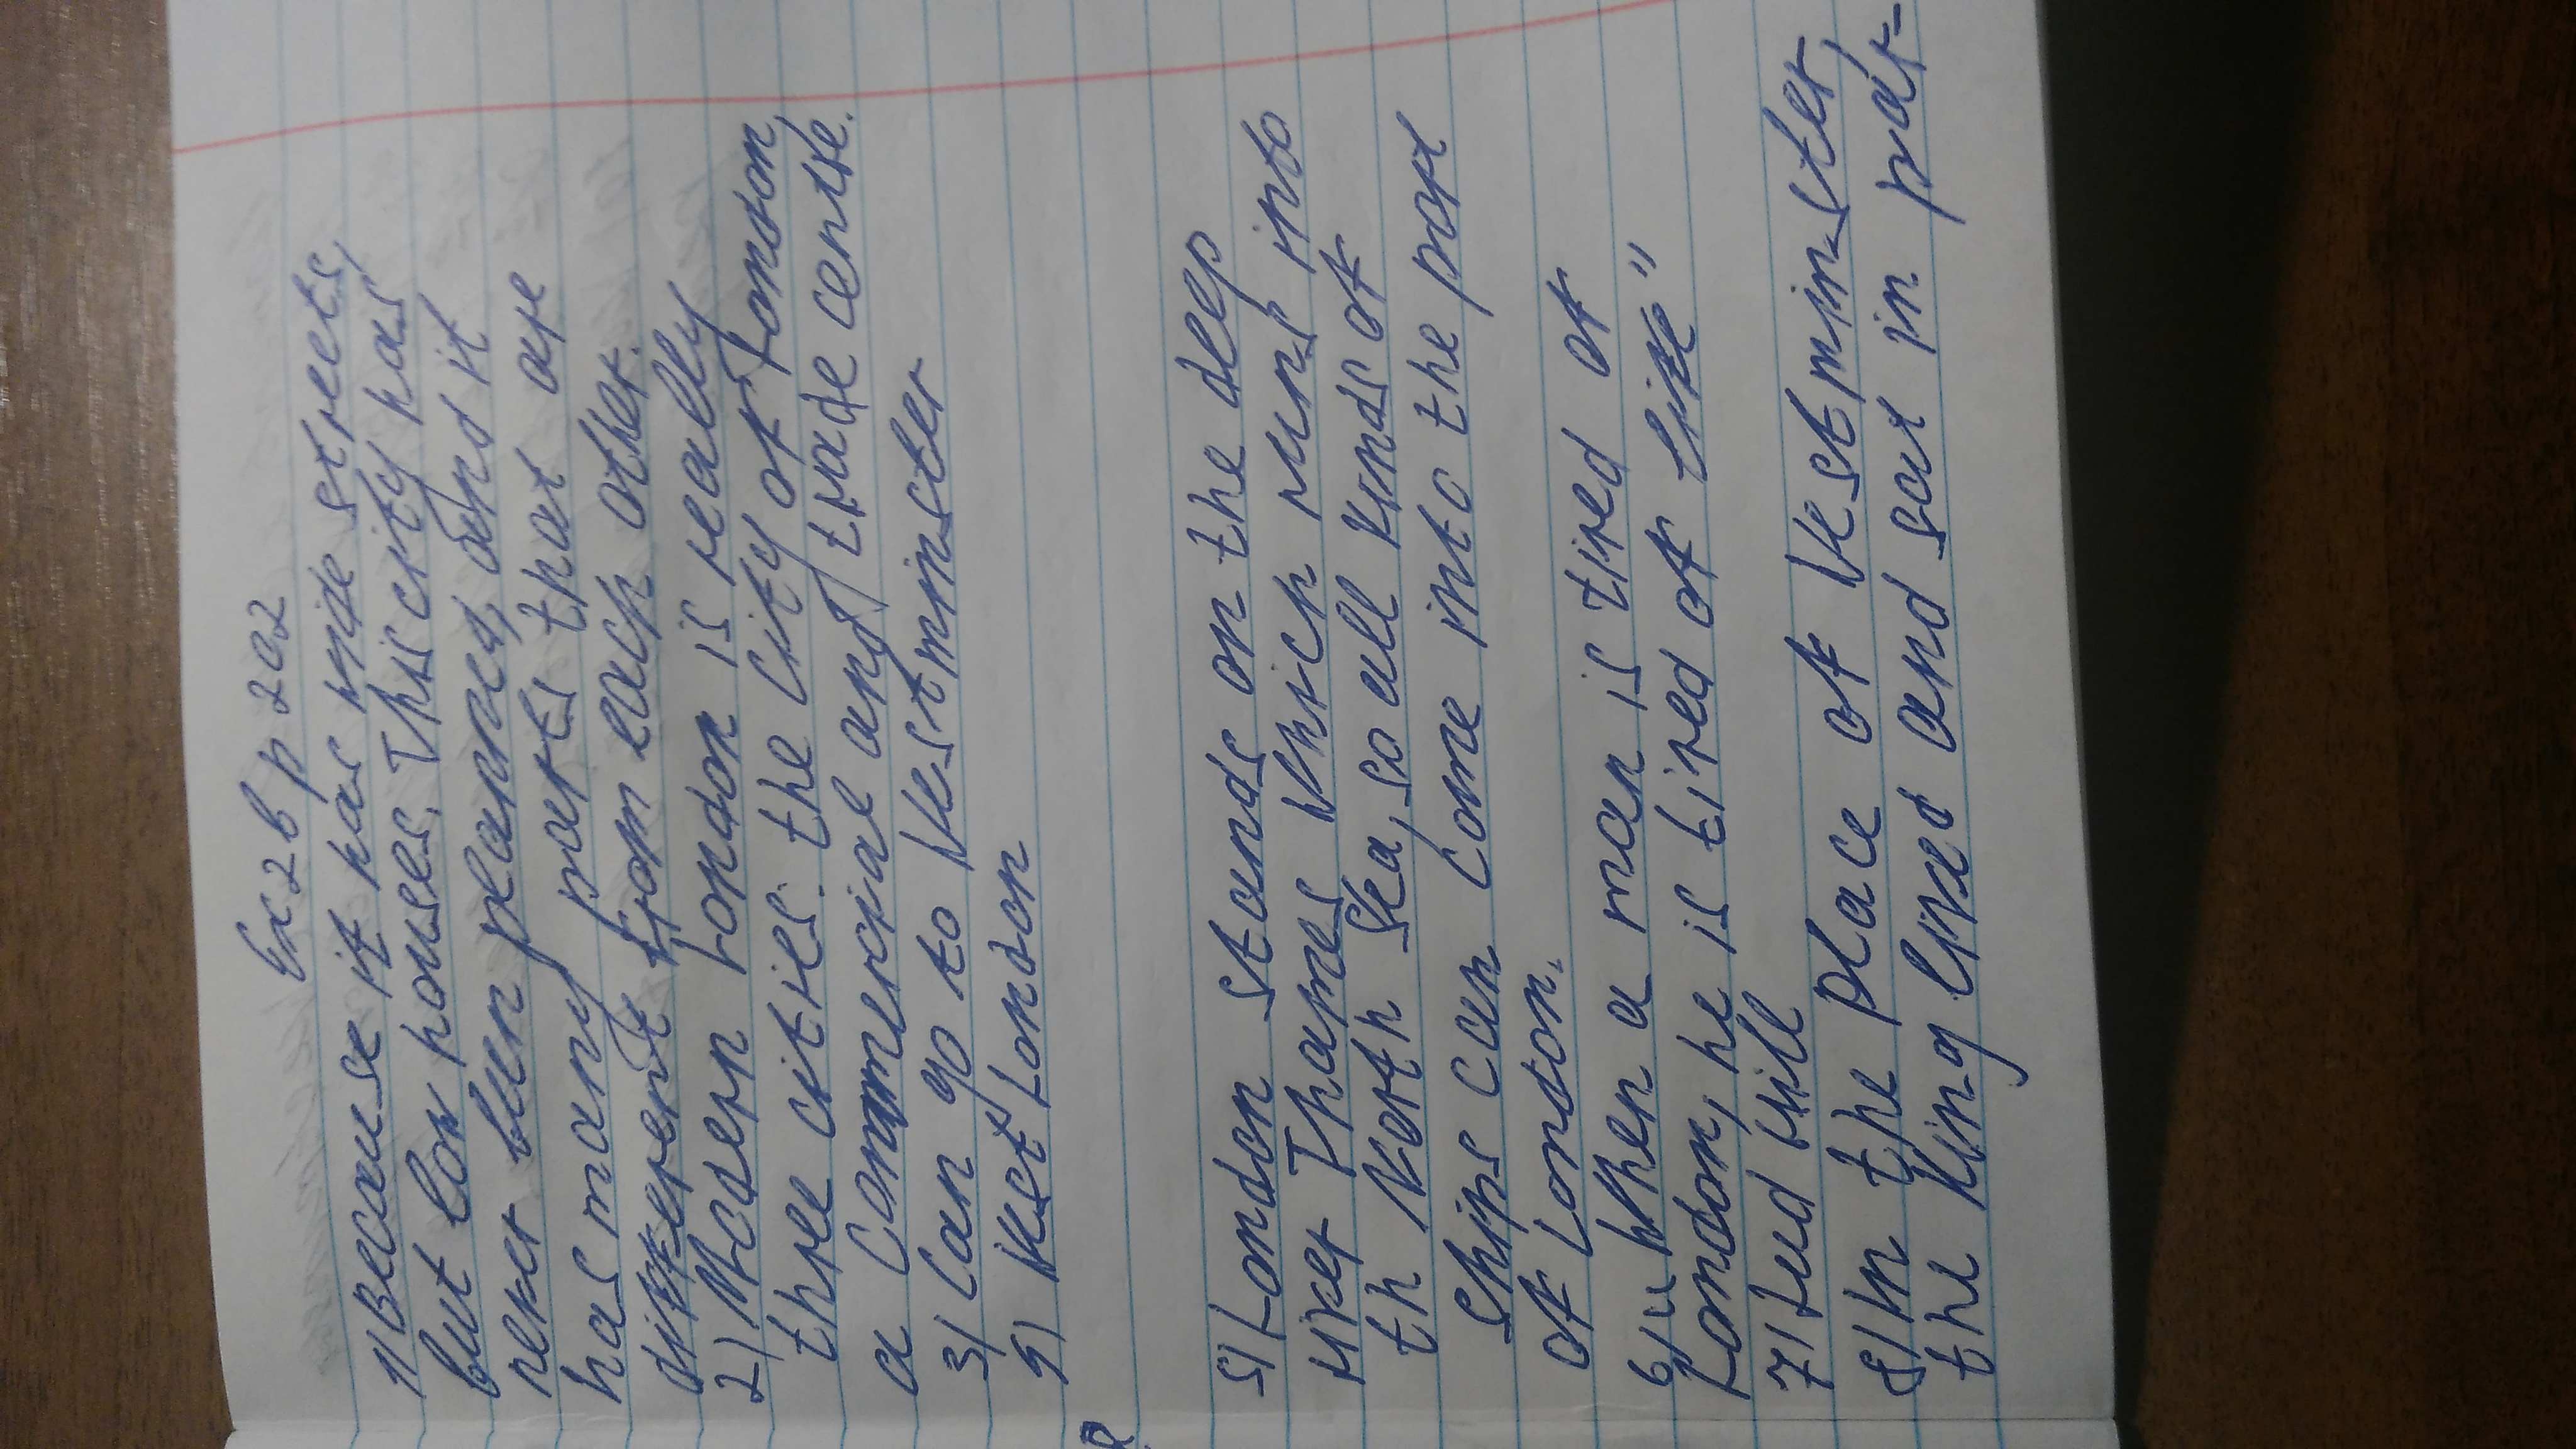 Ex 2 b p 202
1) Because it has wide streets,
but low houses. This city has
never been planned, and it
has many partes that are
different from each other.
2) Modern London is really
three cities: the City of London,
a Commercial and trade centre.
3) Can go to Westminster
4) West London
5) London stands on the deep
river Thames which runs into
th North Sea, so all kinds of
Ships can come into the port
of London.
6) "When a man is tired of
London, he is tired of life"
7) will
8) In the place of Westminster,
the King lived and sat in par-